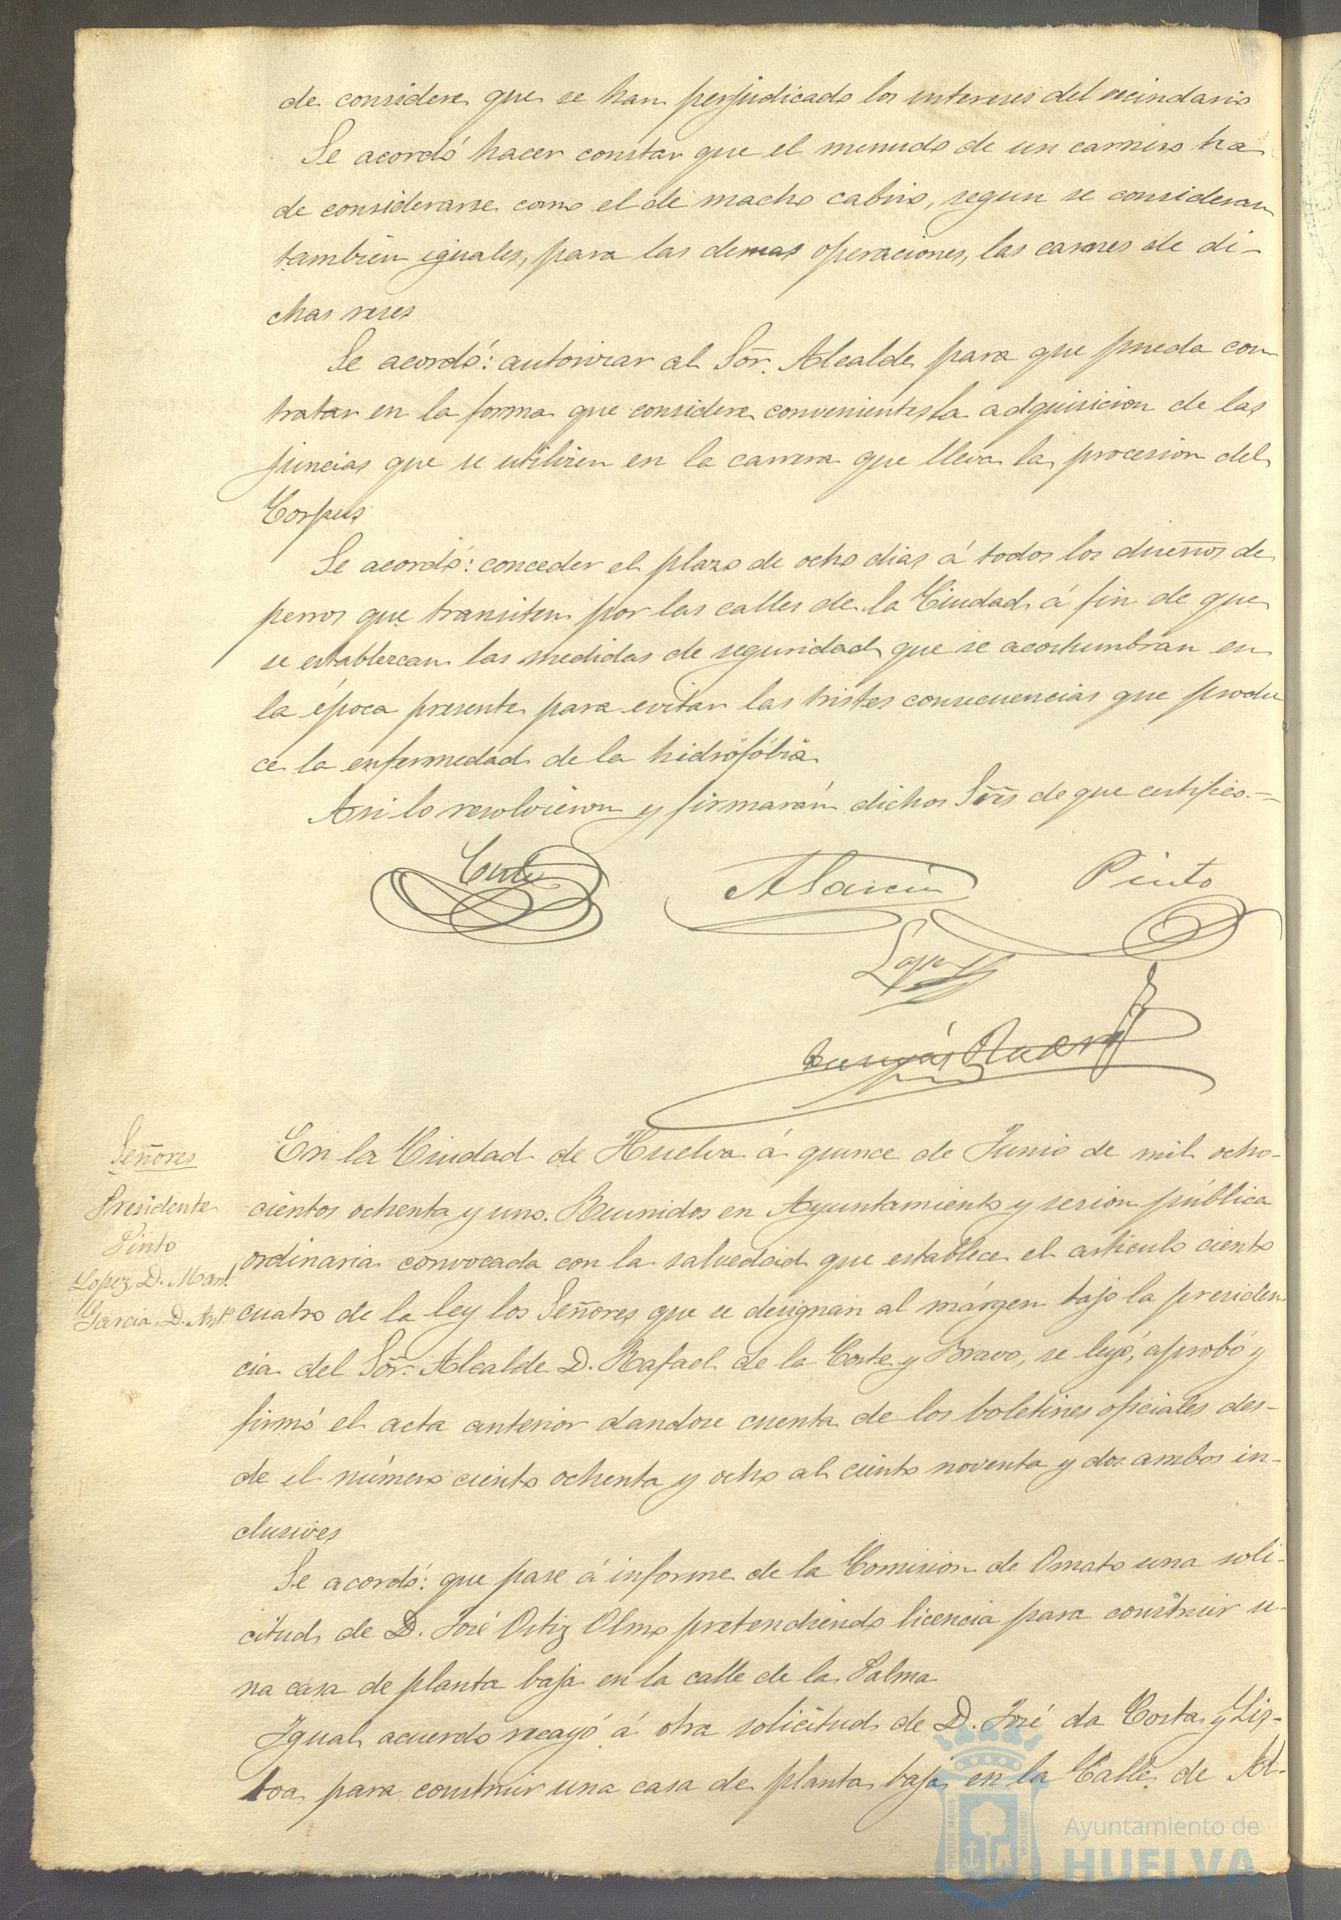 de considere que se han perjudicado los intereses del vecindario
Se acordó hacer constar que el menudo de un carnero ha
de considerarse como el de macho cabrio, segun se consideran
tambien iguales, para las demas operaciones, las carnes de di-
chas reses
Se acordó: autorizar al Sõr. Alcalde para que pueda con
tratar en la forma que considere conveniente, la adquisicion de las
juncias que se utilizen en la carrera que lleva la procesion del
Corpus
Se acordó: conceder el plazo de ocho dias á todos los dueños de
perros que transiten por las calles de la Ciudad á fin de que
se establezcan las medidas de seguridad que se acostumbran en
la época presente para evitar las tristes consecuencias que produ
ce la enfermedad de la hidrófobia
Asi lo resolvieron y firmarán dichos Sr̃es de que certifico.=
Corte
A Garcia
Pinto
Lopez
Señores
Presidente
Pinto
Lopez, D. Man.l
Garcia, D. Ant.o
En la Ciudad de Huelva á quince de Junio de mil ocho-
cientos ochenta y uno. Reunidos en Ayuntamiento y sesion pública
ordinaria convocada con la salvedad que establece el articulo ciento
cuatro de la ley los Señores que se designan al márgen bajo la presiden
cia del Sõr. Alcalde D. Rafael de la Corte y Bravo, se leyó, aprobó y
firmó el acta anterior dandose cuenta de los boletines oficiales des-
de el número ciento ochenta y ocho al ciento noventa y dos ambos in-
clusives
Se acordó: que pase á informe de la Comision de Ornato una soli-
citud de D. José Ortiz Olmo pretendiendo licencia para construir u-
na casa de planta baja en la calle de la Palma
Igual acuerdo recayó á otra solicitud de D. José da Costa y Lis-
boa para construir una casa de planta baja en la Calle de
Ayuntamiento de
HUELVA